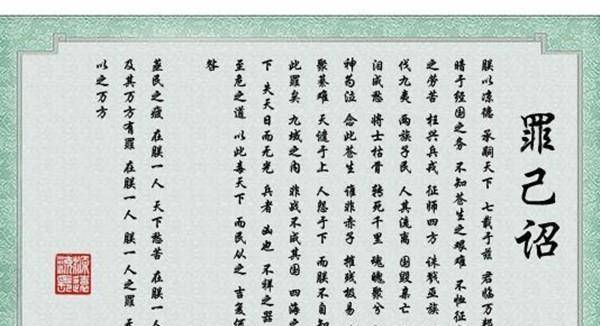 罪己诏
朕以凉德 承嗣天下 七载于兹 君临万
暗于经国之务 不知苍生之艰难 不恤征
之劳苦 枉兴兵戎 征师四方 诛戮巫族
伐九夷 两族子民 人其流离 国毁巢亡
泪成愁 将士枯骨 转死千里 魂魄聚兮
神苟泣 念此苍生 谁非赤子 摧残极易
聚蓦难 天谴于上 人怨于下 而朕不自知
此罪矣 九域之内 非战不成其国 四海之
下 失天日而无光 兵者 凶也 不祥之器
至危之道 以此毒天下 而民从之 吉又何
咎
蒸民之疲 在朕一人 天下愁苦 在朕一人
及其万方有罪 在朕一人 朕一人之罪 无
以之万方